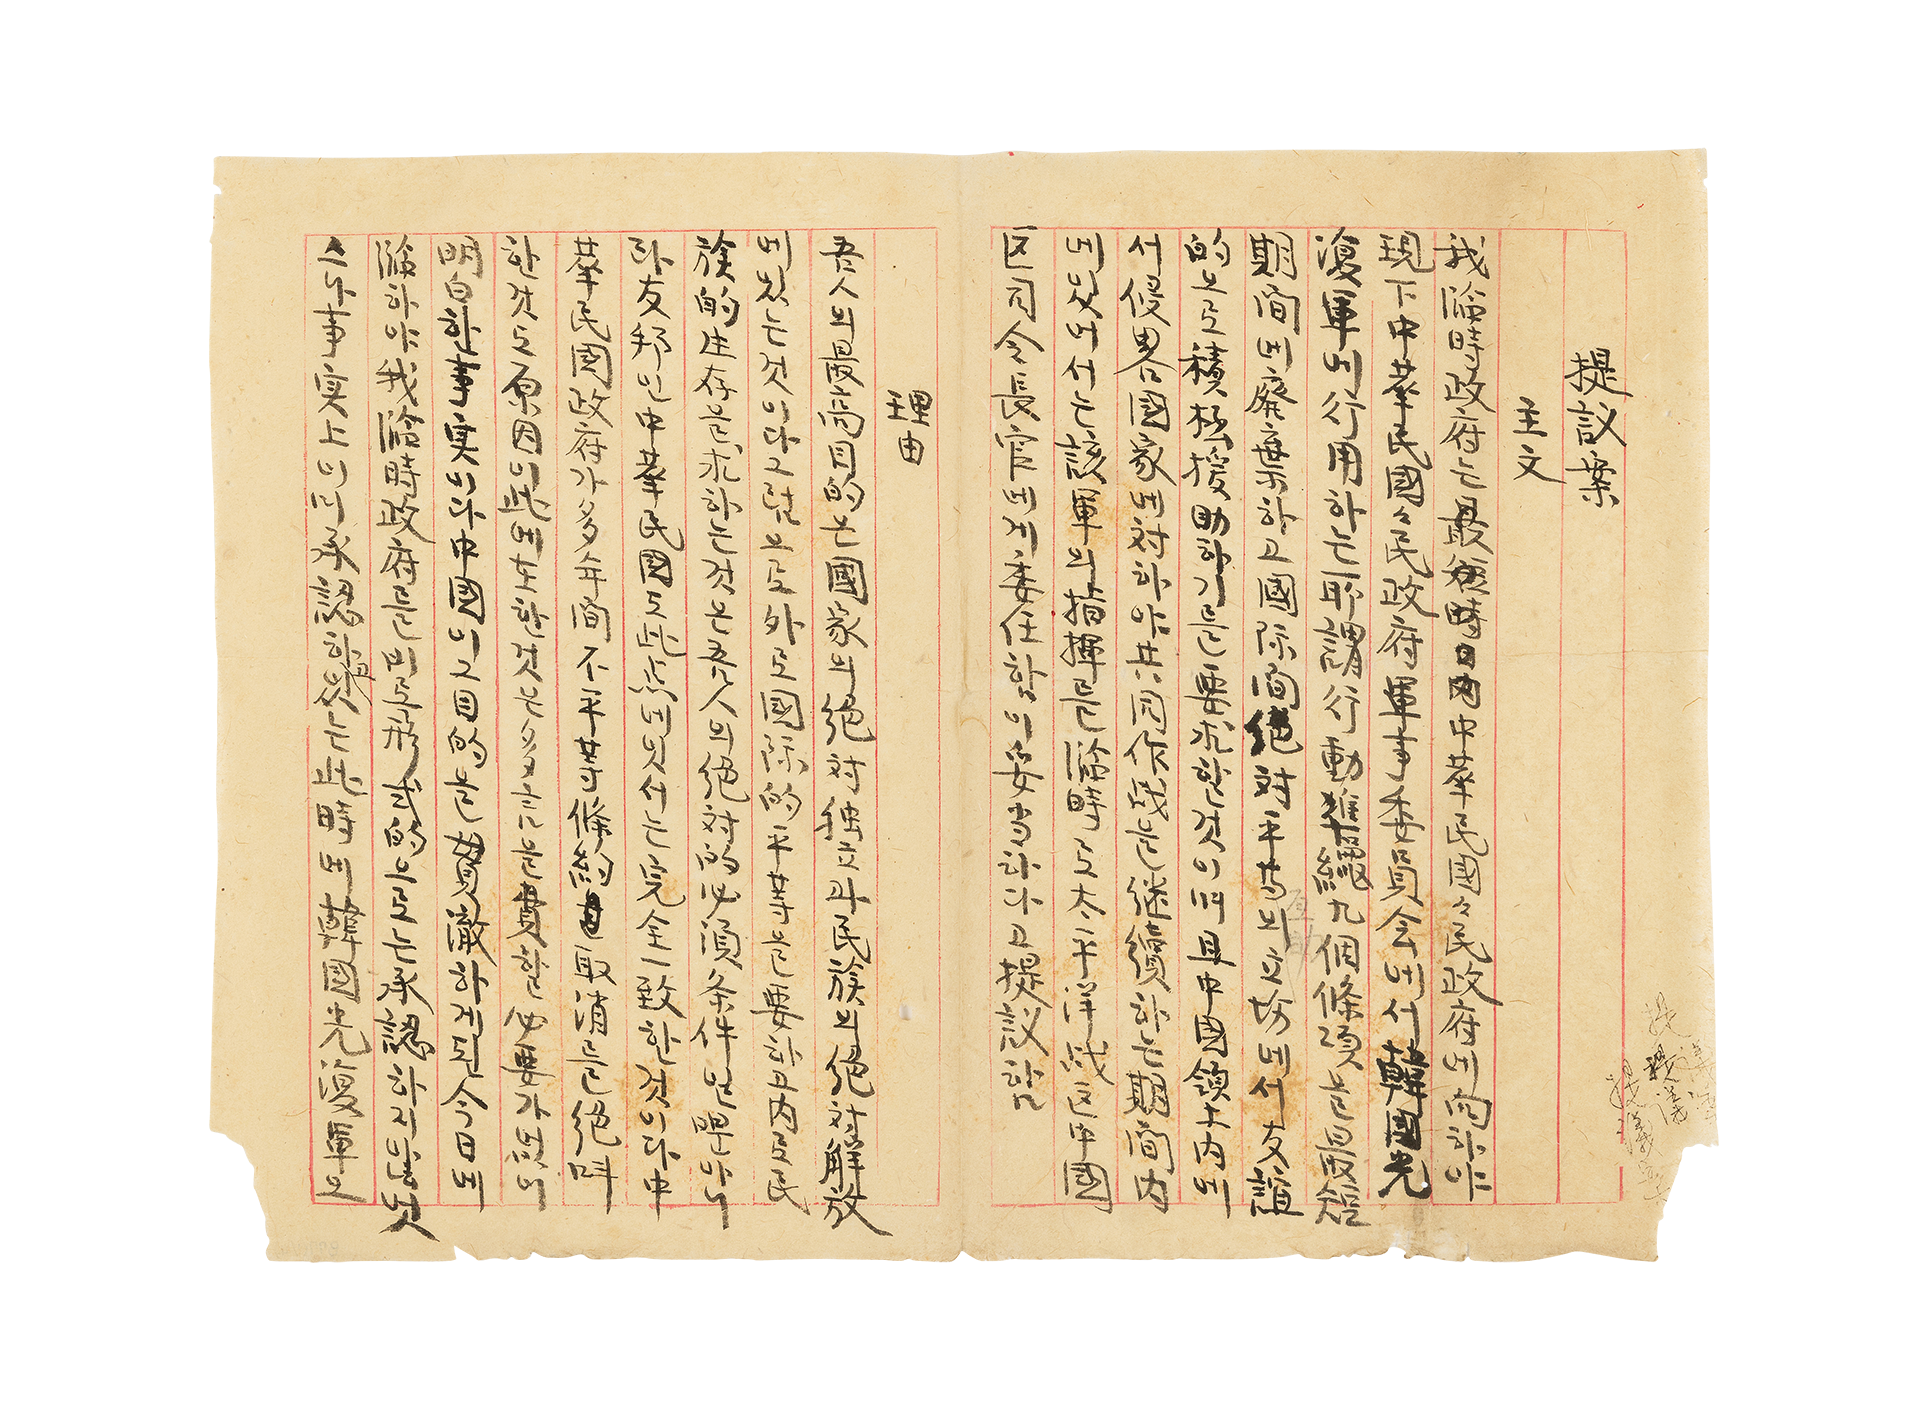 提議案
主文
我臨時政府는 最短時日內 中華民國國民政府에 向하야
現下 中華民國々民政府 軍事委員会에서 韓国光
復軍에 行用하는 耶謂行動準繩九個條項을 最短
期間에 廢棄하고 國際間 絶対平等의 立場에서 友誼
的으로 積極援助하기를 要求할것이며 且 中國領土內에
서 侵畧國家에 対하야 共同作战을 継續하는 期間內
에 있어서는 該軍의 指揮를 臨時로 太平洋战区中國
区司令長官에게 委任함이 妥当하다고 提议함
理由
吾人의 最高目的은 國家의 絶対独立과 民族의 絶対解放
에 있는것이다 그럼으로 外로 國際的平等을 要하고 內로 民
族的生存을 求하는것은 吾人의 絶対的 必須条件일뿐아니
라 友邦인 中華民國도 此点에 있어서는 完全一致한것이다 中
華民國政府가 多年間 不平等條約 取消를 絶叫
한것도 原因이 此에 在한것은 多言을 費할 必要가 없이
明白한 事実이다 中國이 그 目的을 貫徹하게된 今日에
臨하야 我臨時政府를 正式的으로는 承認하지 안엇
스나 事实上 이미 承認하엿는 此時에 韓国光復軍의